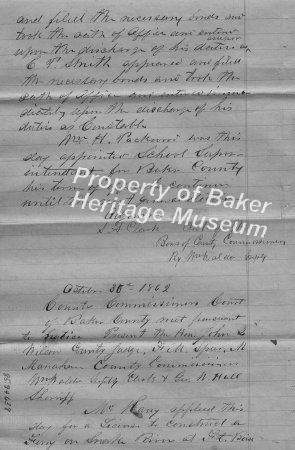 and filed the necessary bonds and
took the oath of office and
upon the discharge of his duties as
E. P. Smith appeared and filed
the necessary bonds and took the
oath of office and entered imme
diately upon the discharge of his
duties as Constable
Wm H. Packwood was this
day appointed School Super
intendent for Baker County
his term of
until
Property of Baker
Heritage Museum
S. H. Clark
Board of County Commissioners
By Wm Waldo Depty
October 30th 1862
County Commissioners Court
of Baker County met pursuant
to Notice Present the Hon John Q
Wilson County Judge,
County Commissioner
Wm Waldo Depty Clerk & Geo. W. Hall
Sheriff
applied this
day for a License to construct a
Ferry on Snake River at